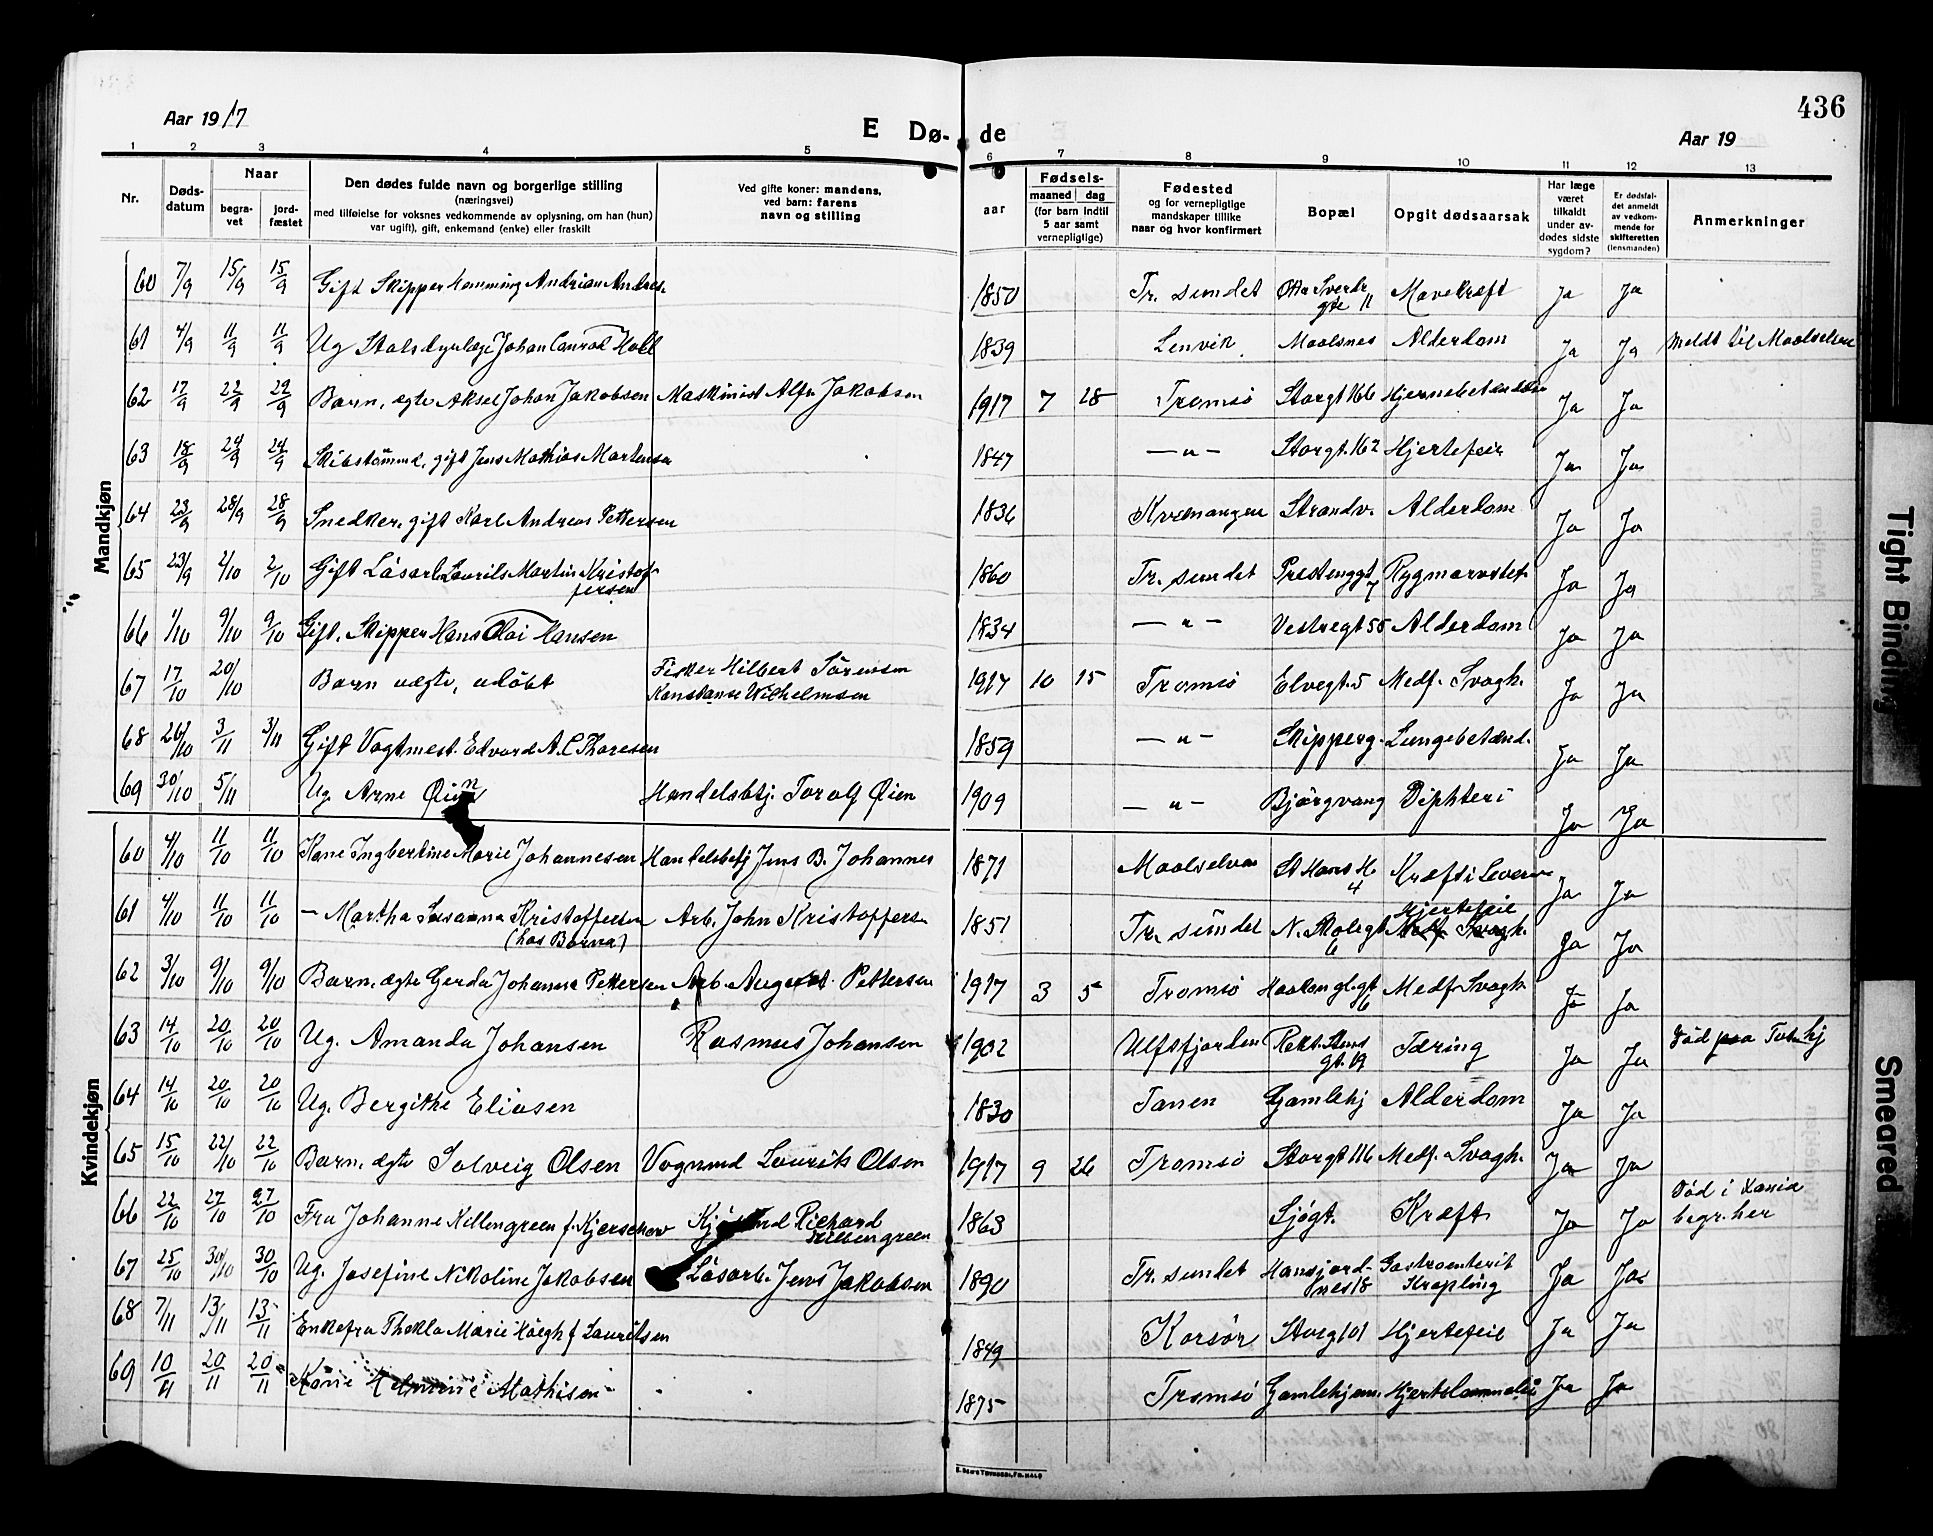 436
Aar 1917
E Dø-de
Aar 19
1 2 3 4 5 6 7 8 9 10 11 12 13
Nr.
Døds-
datum
Naar
begra-
vet
jord-
fæstet
Den dødes fulde navn og borgerlige stilling
(næringsvei)
med tilføielse for voksnes vedkommende av oplysning, om han (hun)
var ugift), gift, enkemand (enke) eller fraskilt
Ved gifte koner: mandens,
ved barn: farens
navn og stilling
aar
Fødsels-
maaned dag
(for barn indtil
5 aar samt
vernepligtige)
Fødested
og for vernepligtige
mandskaper tillike
naar og hvor konfirmert
Bopæl
Opgit dødsaarsak
Har læge
været
tilkaldt
under av-
dødes sidste
sygdom?
Er dødsfal-
det anmeldt
av vedkom-
mende for
skifteretten
(lensmanden)
Anmerkninger
Mandkjøn
60 7/9 15/9 15/9 Gift Skipper Hemming Andrian Andres. 1850 Tr. sundet Otto Sverdr. gte 11 Mavekræft Ja Ja
61 4/9 11/9 11/9 Ug Statsdyrlæge Johan Conrad Holl 1839 Lenvik Maalsnes Alderdom Ja Ja Meldt til Maalselven
62 17/9 22/9 22/9 Barn, ægte Aksel Johan Jakobsen Maskinist Alfr Jakobsen 1917 7 28 Tromsö Storgt 166 Hjernebetændelse Ja Ja
63 18/9 24/9 24/9 Skibstømmd. gift Jens Mathias Martensen 1847 —"— Storgt. 162 Hjertefeil Ja Ja
64 23/9 28/9 28/9 Snedker, gift Karl Andreas Pettersen 1836 Kvænangen Strandv. Alderdom Ja Ja
65 23/9 2/10 2/10 Gift Løsarb. Laurits Martin Kristof-
fersen 1860 Tr. sundet Prestenggt 7 Rygmarvstet. Ja Ja
66 1/10 9/10 9/10 Gift. Skipper Hans Olai Hansen 1834 —"— Vestregt 55 Alderdom Ja Ja
67 17/10 20/10 Barn uægte, udöbt Fisker Hilbert Sörensen
Konstanse Wilhelmsen 1917 10 15 Tromsö Elvegt. 5 Medf. Svagh. Ja Ja
68 26/10 3/11 3/11 Gift Vagtmest. Edvard A. C. Thoresen 1859 —"— Skipperg. Lungebetænd. Ja Ja
69 30/10 5/11 Ug. Arne Øien Handelsbtj. Toralf Øien 1909 —"— Björgvang Diphteri Ja Ja
Kvindekjøn
60 4/10 11/10 11/10 Kone Ingbertine Marie Johannesen Handelsbtj Jens B. Johannes 1871 Maalselven St Hans H 4 Kræft i Leveren Ja Ja
61 4/10 11/10 11/10 — Martha Susanna Kristoffersen
(hos Barna) Arb. John Kristoffers 1851 Tr. sundet N. Skolegt 6 Hjertefeil
Medf. Svagh. Ja Ja
62 3/10 9/10 9/10 Barn, ægte Gerda Johanna Pettersen Arb. August Pettersen 1917 3 5 Tromsö Haalonglgt 6 Medf. Svagh. Ja Ja
63 14/10 20/10 20/10 Ug. Amanda Johansen Rasmus Johansen 1902 Ulfsfjorden Rekt. Steens gt. 19 Tæring Ja Ja Död paa Tub. hj
64 14/10 20/10 20/10 Ug. Bergithe Eliasen 1830 Tanen Gamlehj Alderdom Ja Ja
65 15/10 22/10 22/10 Barn, ægte Solveig Olsen Vognmd Laurits Olsen 1917 9 26 Tromsö Storgt 116 Medf. Svagh. Ja Ja
66 22/10 27/10 27/10 Fru Johanne Killengreen f. Kjerschow Kjöbmd Richard
Killengreen 1863 Sjögt. Kræft Ja Ja Död i Kania
begr. her
67 25/10 30/10 30/10 Ug. Josefine Nikoline Jakobsen Lösarb. Jens Jakobsen 1890 Tr. sundet Hansjord-
nes 18 Gastroenterit
Krapling Ja Ja
68 7/11 13/11 13/11 Enkefru Thekla Marie Höegh f Lauritsen 1849 Korsør Storg 101 Hjertefeil Ja Ja
69 10/11 20/11 20/11 Kone Helmine Mathisen 1875 Tromsö Gamlehjem. Hjertelammelse Ja Ja
E. Sem's Trykkeri, Fr.hald
Tight Binding
Smeared